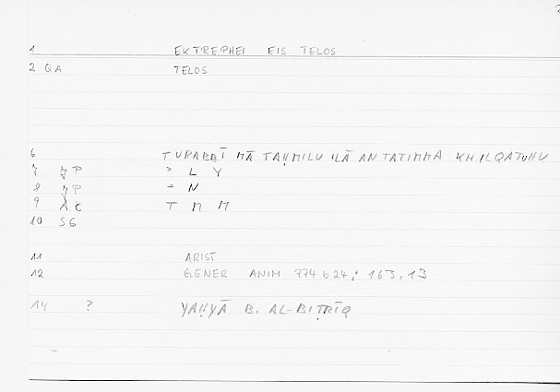 1 EKTREPHEI EIS TELOS
2 QA TELOS
6 TURABBĪ MĀ TAḤMILU ILĀ AN TATIMMA KHILQATUHU
7 JP > L Y
8 JP > N
9 AC T M M
10 SG
11 ARIST
12 GENER ANIM 774 b 24; 163,13
14 ? YAḤYĀ B. AL-BIṬRĪQ